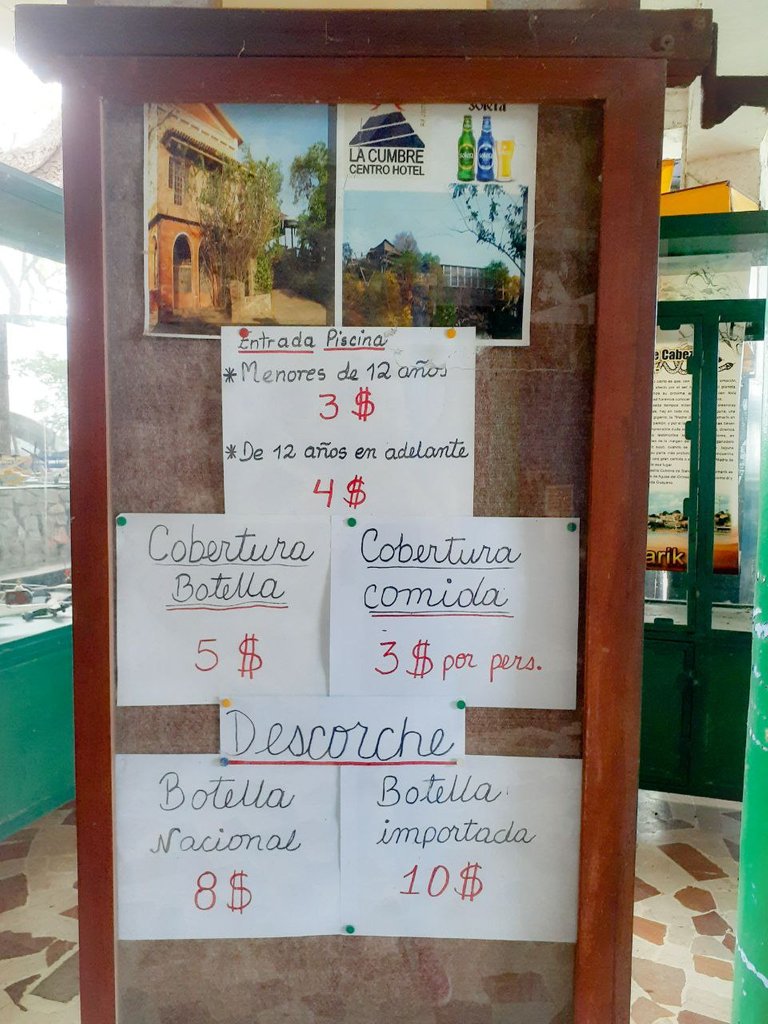 LA CUMBRE
CENTRO HOTEL
Solera
Entrada Piscina
* Menores de 12 años
3 $
* De 12 años en adelante
4 $
Cobertura
Botella
5 $
Cobertura
comida
3 $ por pers.
Descorche
Botella
Nacional
8 $
Botella
importada
10 $
e Cabez
arik